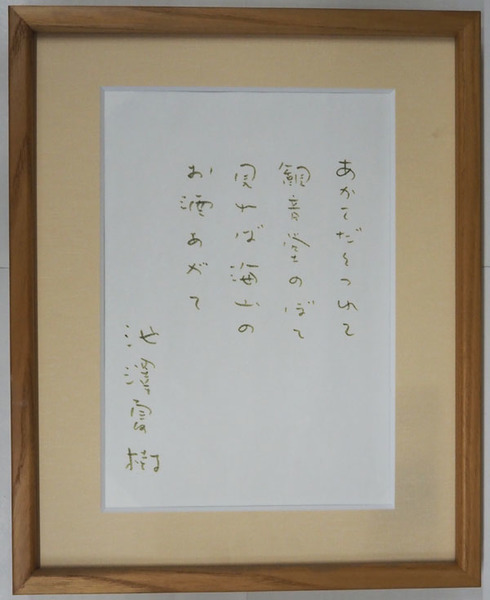 あか だ つれて
観音堂のぼて
見れば海山の
お酒あがて
池澤夏樹